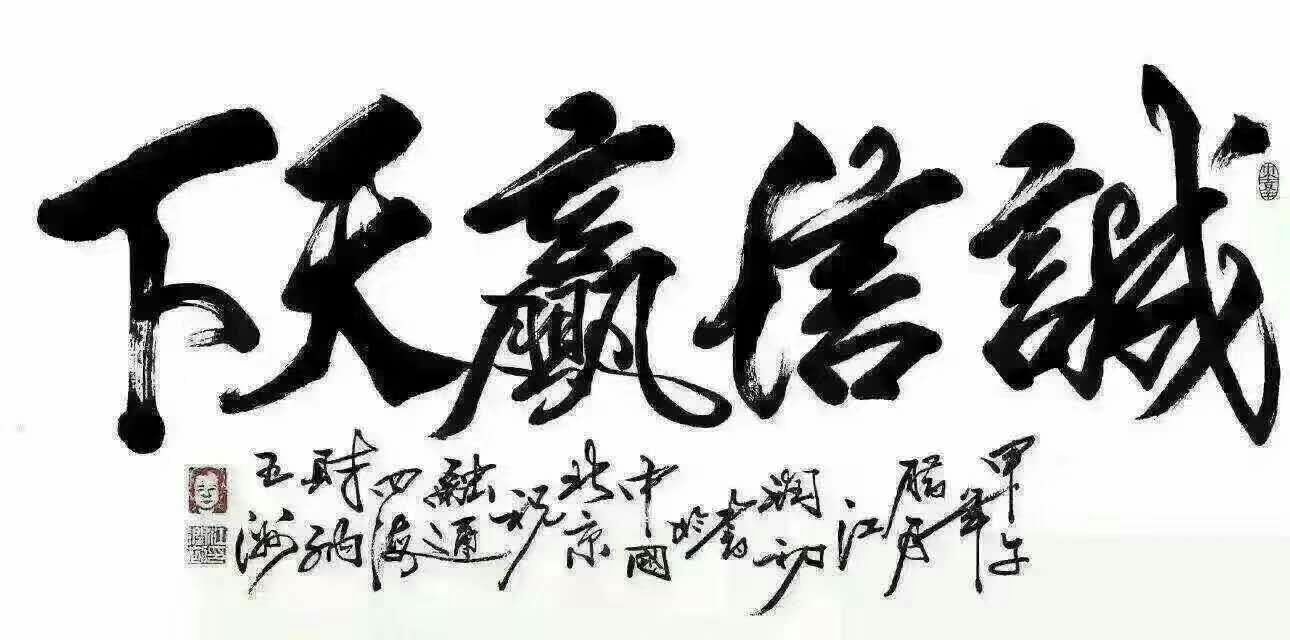 誠信贏天下
甲午
年
腊月
江
潤初
書
於
中國
北京
祝
融通
四海
財納
五洲